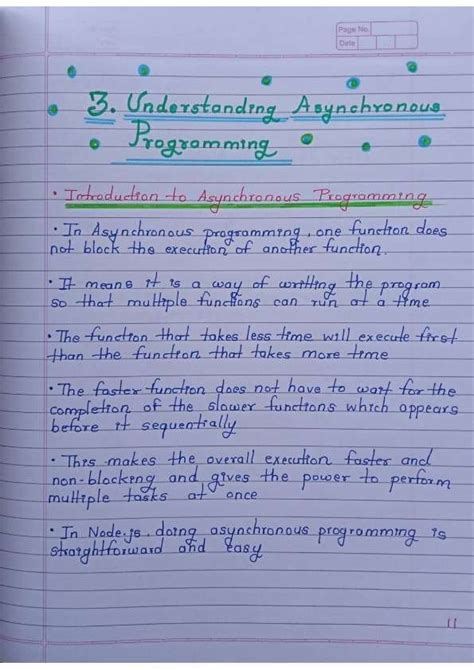 Page No.
Date
3. Understanding Asynchronous
Programming
• Introduction to Asynchronous Programming
• In Asynchronous programming, one function does
not block the execution of another function.
• It means it is a way of writting the program
so that multiple functions can run at a time
• The function that takes less time will execute first
than the function that takes more time
• The faster function does not have to wait for the
completion of the slower functions which appears
before it sequentially
• This makes the overall execution faster and
non-blocking and gives the power to perform
multiple tasks at once
• In Node.js, doing asynchronous programming is
straightforward and easy
11